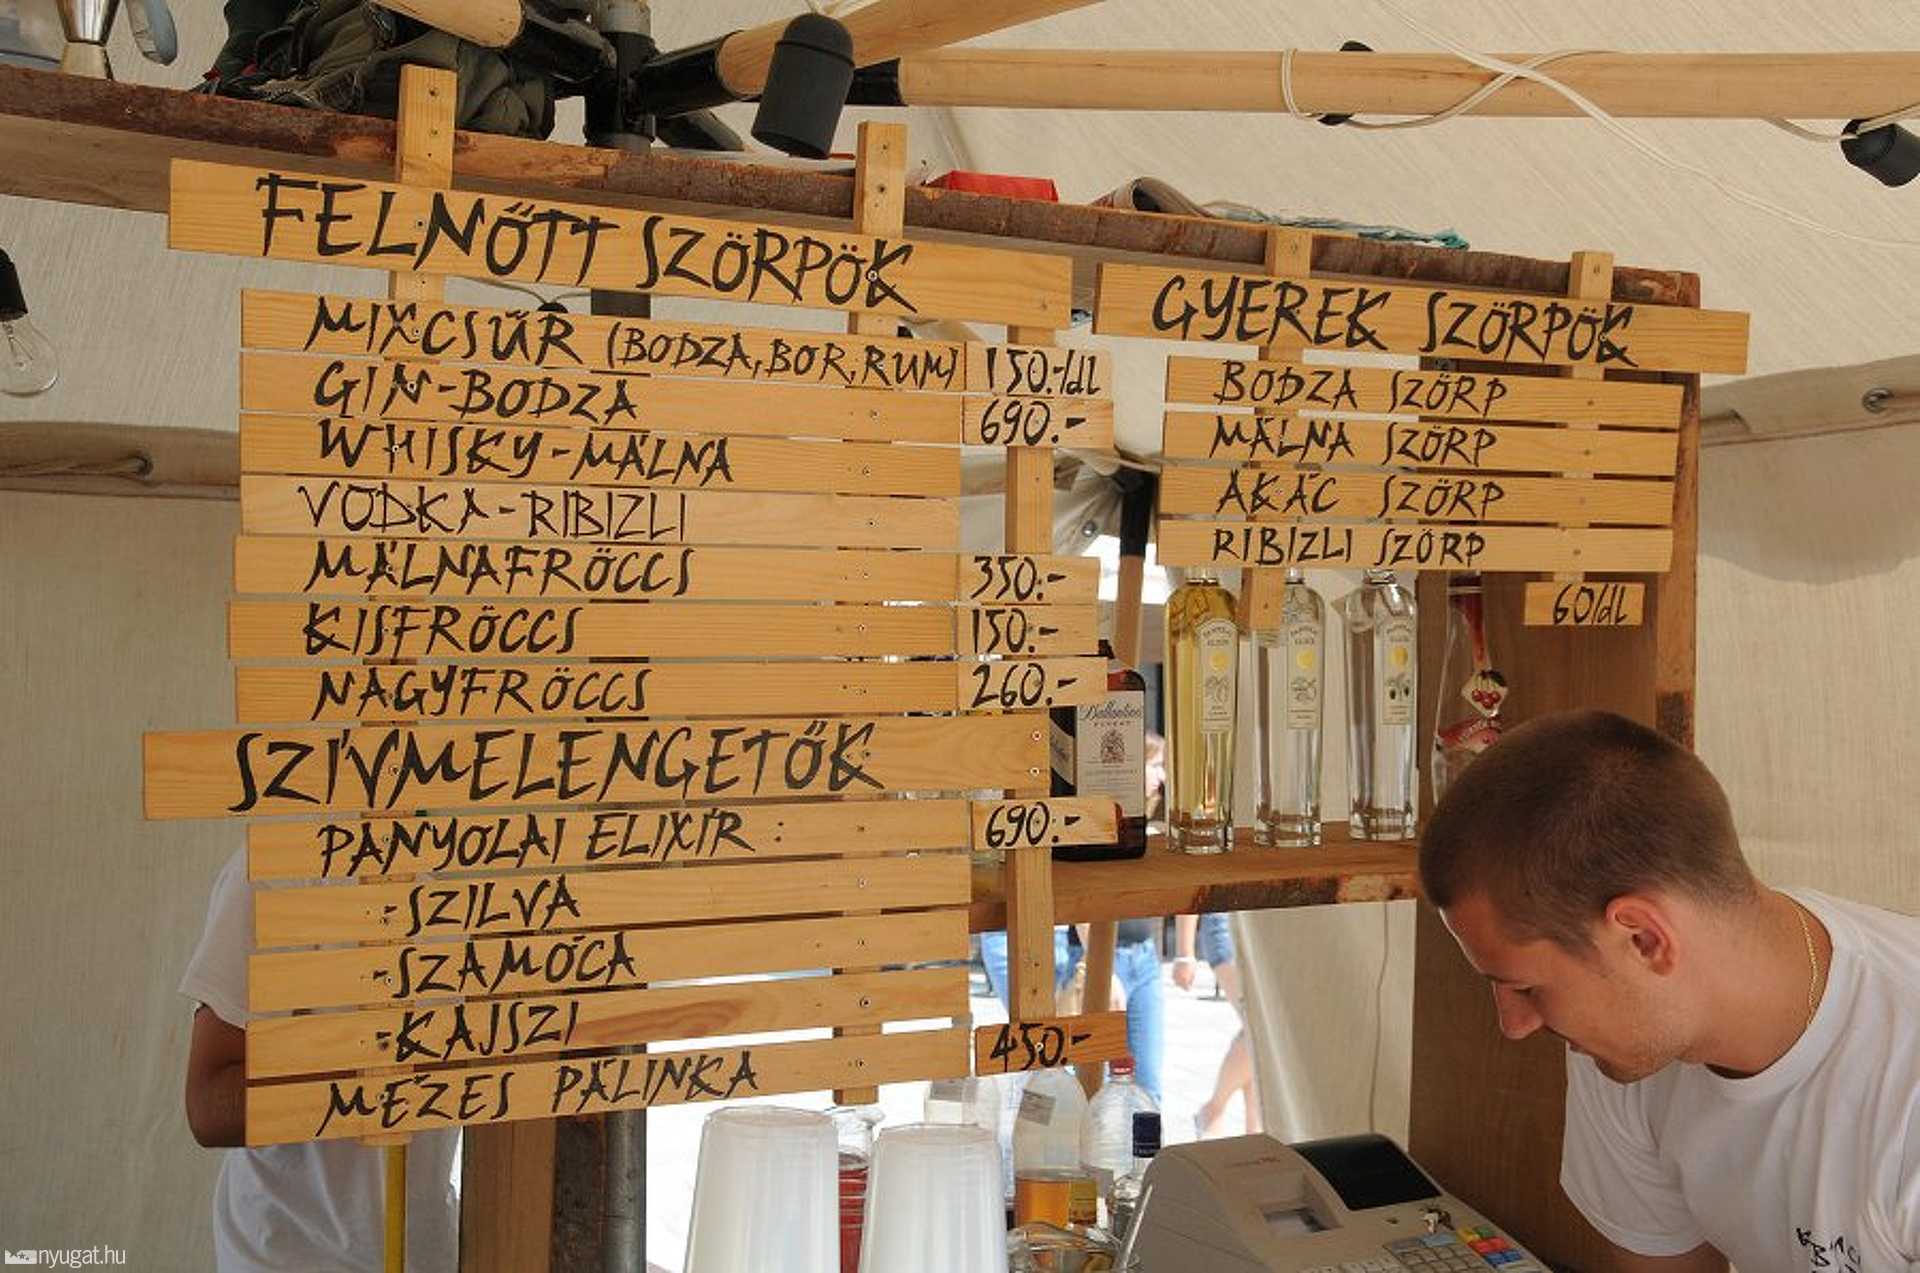 FELNŐTT SZÖRPÖK
MIXCSŰR (BODZA, BOR, RUM) 150.-/dL
GIN-BODZA 690.-
WHISKY-MÁLNA
VODKA-RIBIZLI
MÁLNAFRÖCCS 350.-
KISFRÖCCS 150.-
NAGYFRÖCCS 260.-
SZÍVMELENGETŐK
PANYOLAI ELIXÍR : 690.-
-SZILVA
-SZAMÓCA
-KAJSZI
MÉZES PÁLINKA 450.-
GYEREK SZÖRPÖK
BODZA SZÖRP
MÁLNA SZÖRP
AKÁC SZÖRP
RIBIZLI SZÖRP
60/dL
Ballantine's
nyugat.hu